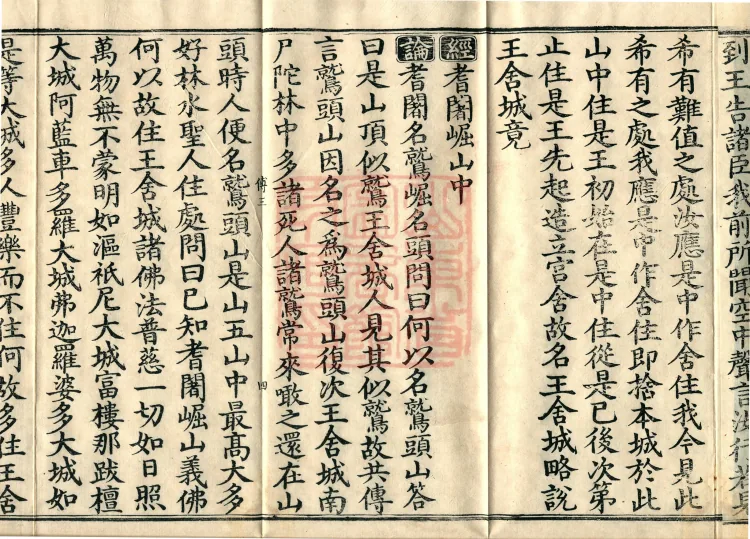 到王告諸臣我前所聞空中聲言汝行若見
希有難值之處汝應是中作舍住我今見此
希有之處我應是中作舍住即捨本城於此
山中住是王初始在是中住從是已後次第
止住是王先起造立宮舍故名王舍城略說
王舍城竟
經耆闍崛山中
論耆闍名鷲崛名頭問曰何以名鷲頭山答
曰是山頂似鷲王舍城人見其似鷲故共傳
言鷲頭山因名之為鷲頭山復次王舍城南
尸陀林中多諸死人諸鷲常來噉之還在山
傅三 四
頭時人便名鷲頭山是山五山中最高大多
好林水聖人住處問曰已知耆闍崛山義佛
何以故住王舍城諸佛法普慈一切如日照
萬物無不蒙明如漚祇尼大城富樓那跋檀
大城阿藍車多羅大城弗迦羅婆多大城如
是等大城多人豐樂而不住何故多住王舍